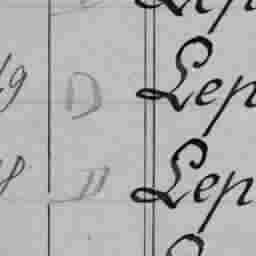 Lep
19 D Lep
18 " Lep